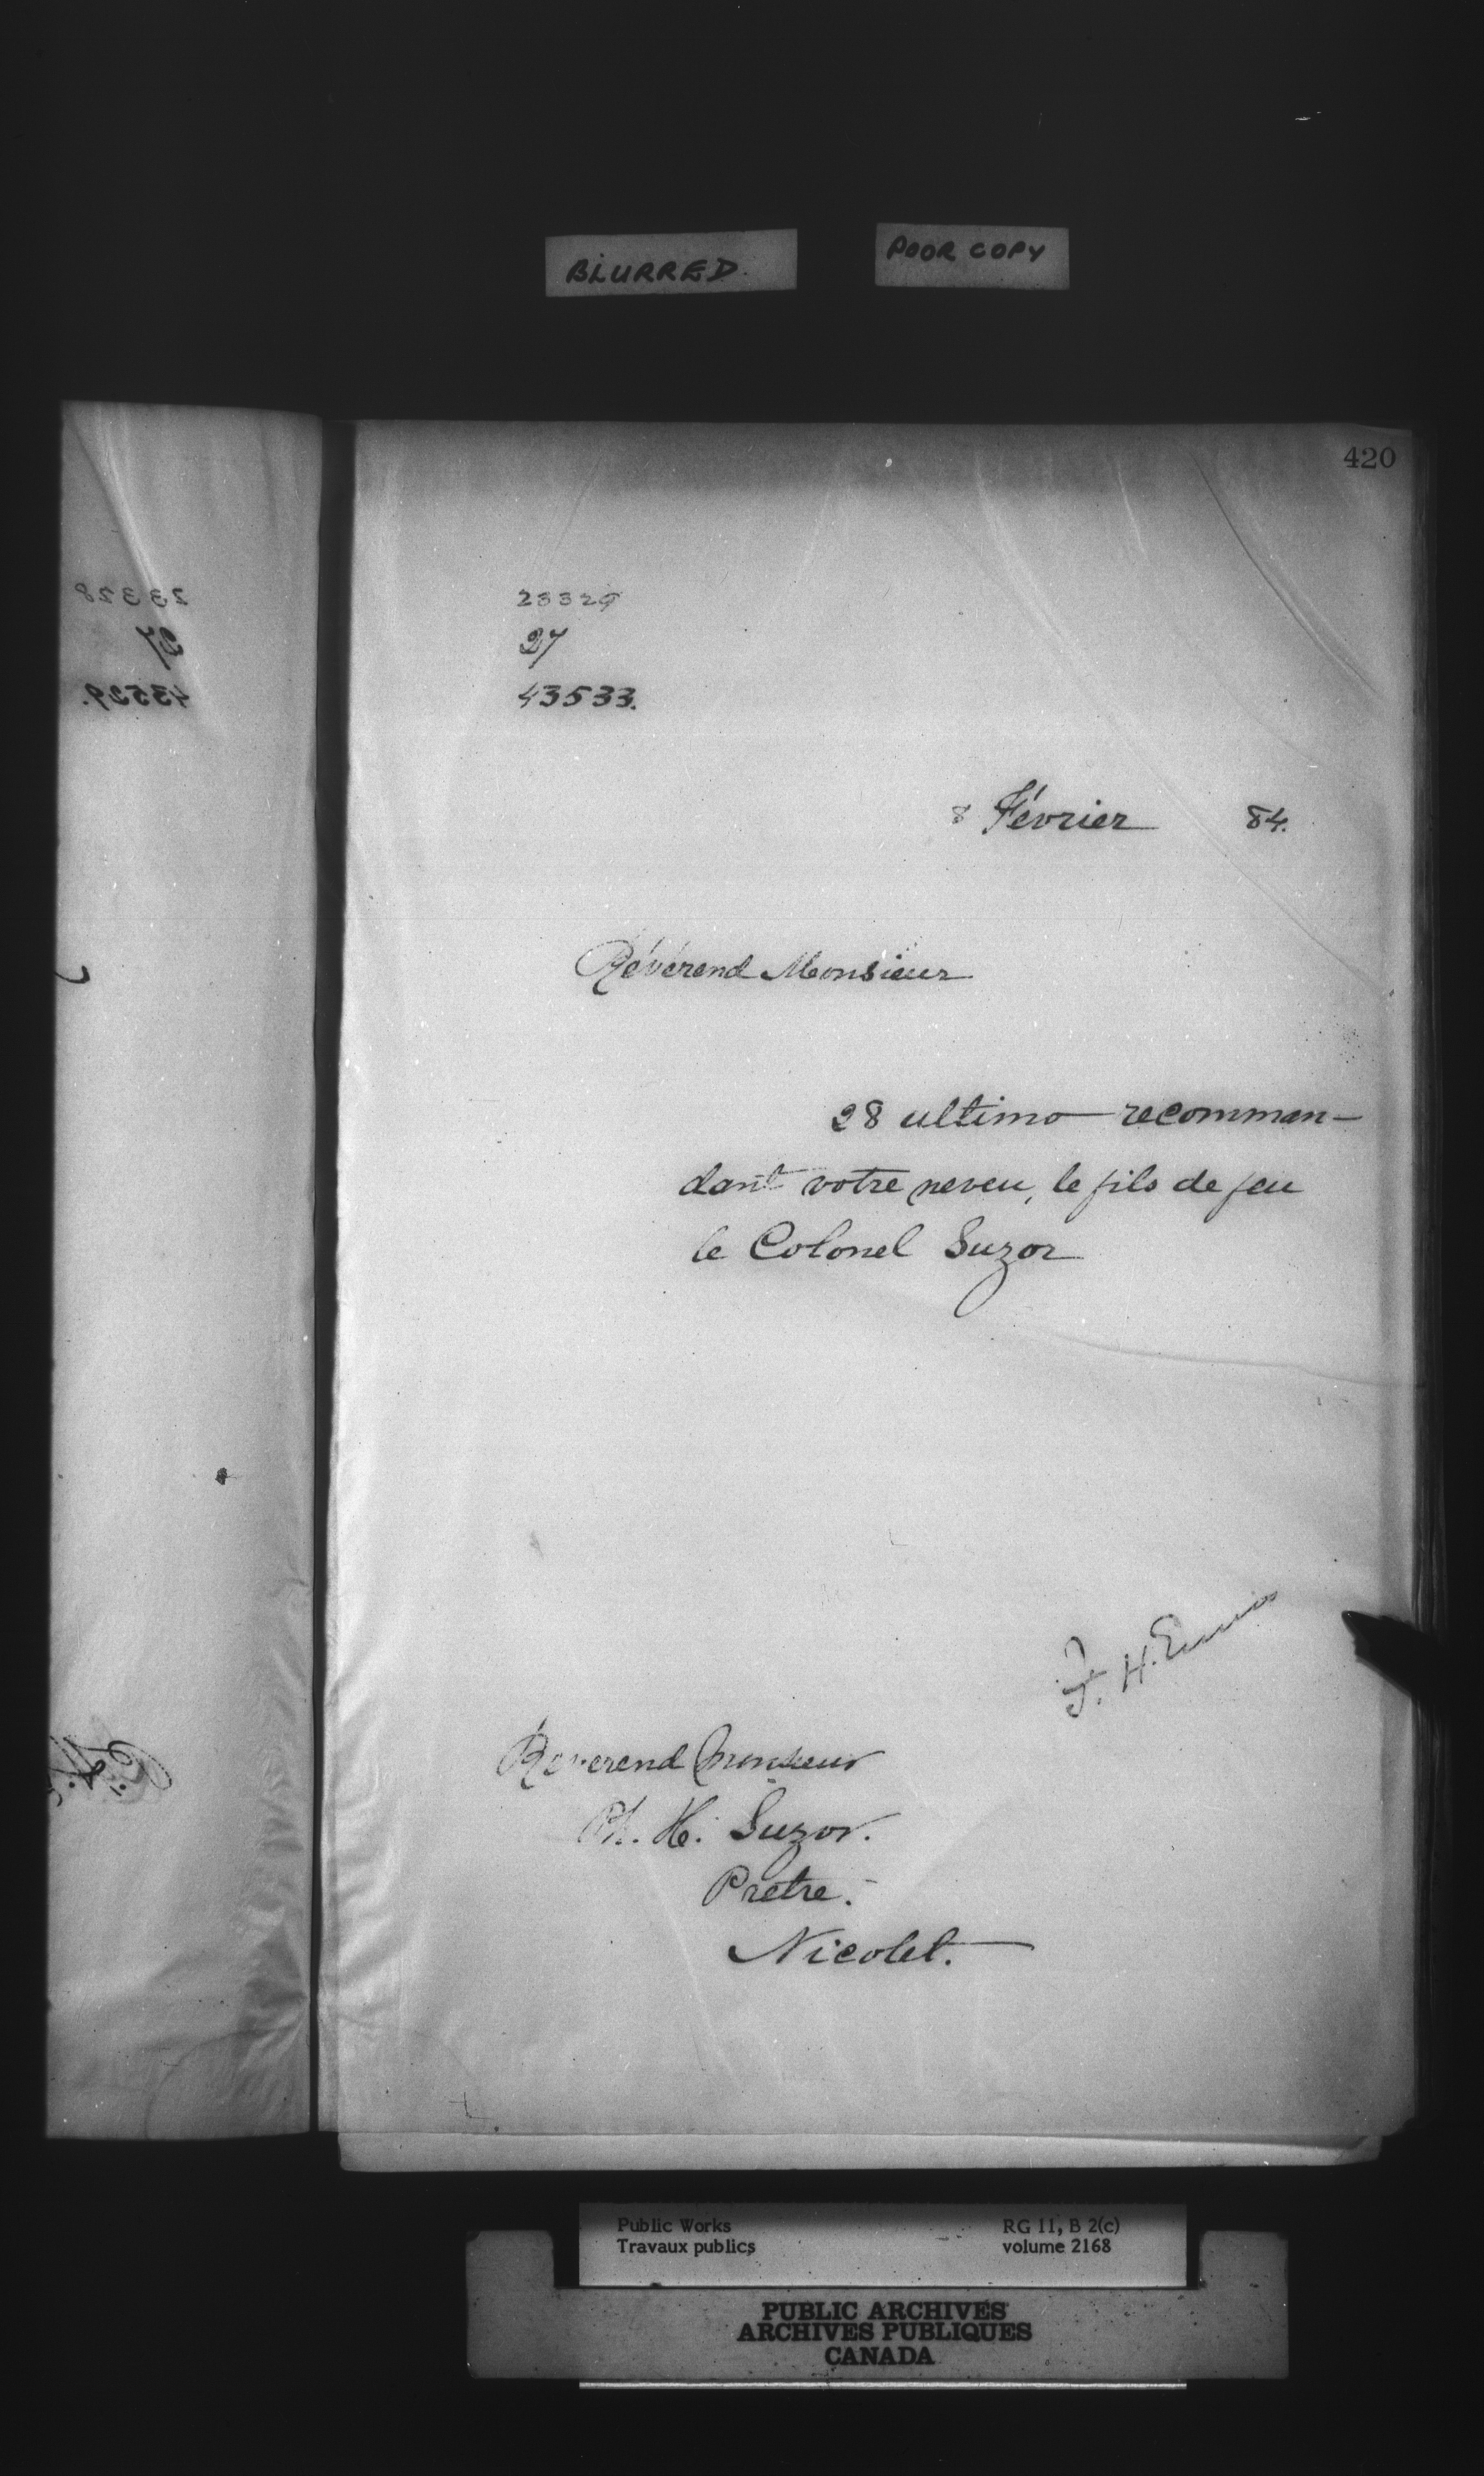 BLURRED.
POOR COPY
420
23328
27
43529.
23329
27
43533.
8 Février 84.
Révérend Monsieur
28 ultimo recomman-
dant votre neveu, le fils de feu
le Colonel Suzor
F. H. Ennis
Réverend Monsieur
Ph. H. Suzor.
Prêtre.
Nicolet.
Public Works
Travaux publics
RG 11, B 2(c)
volume 2168
PUBLIC ARCHIVES
ARCHIVES PUBLIQUES
CANADA